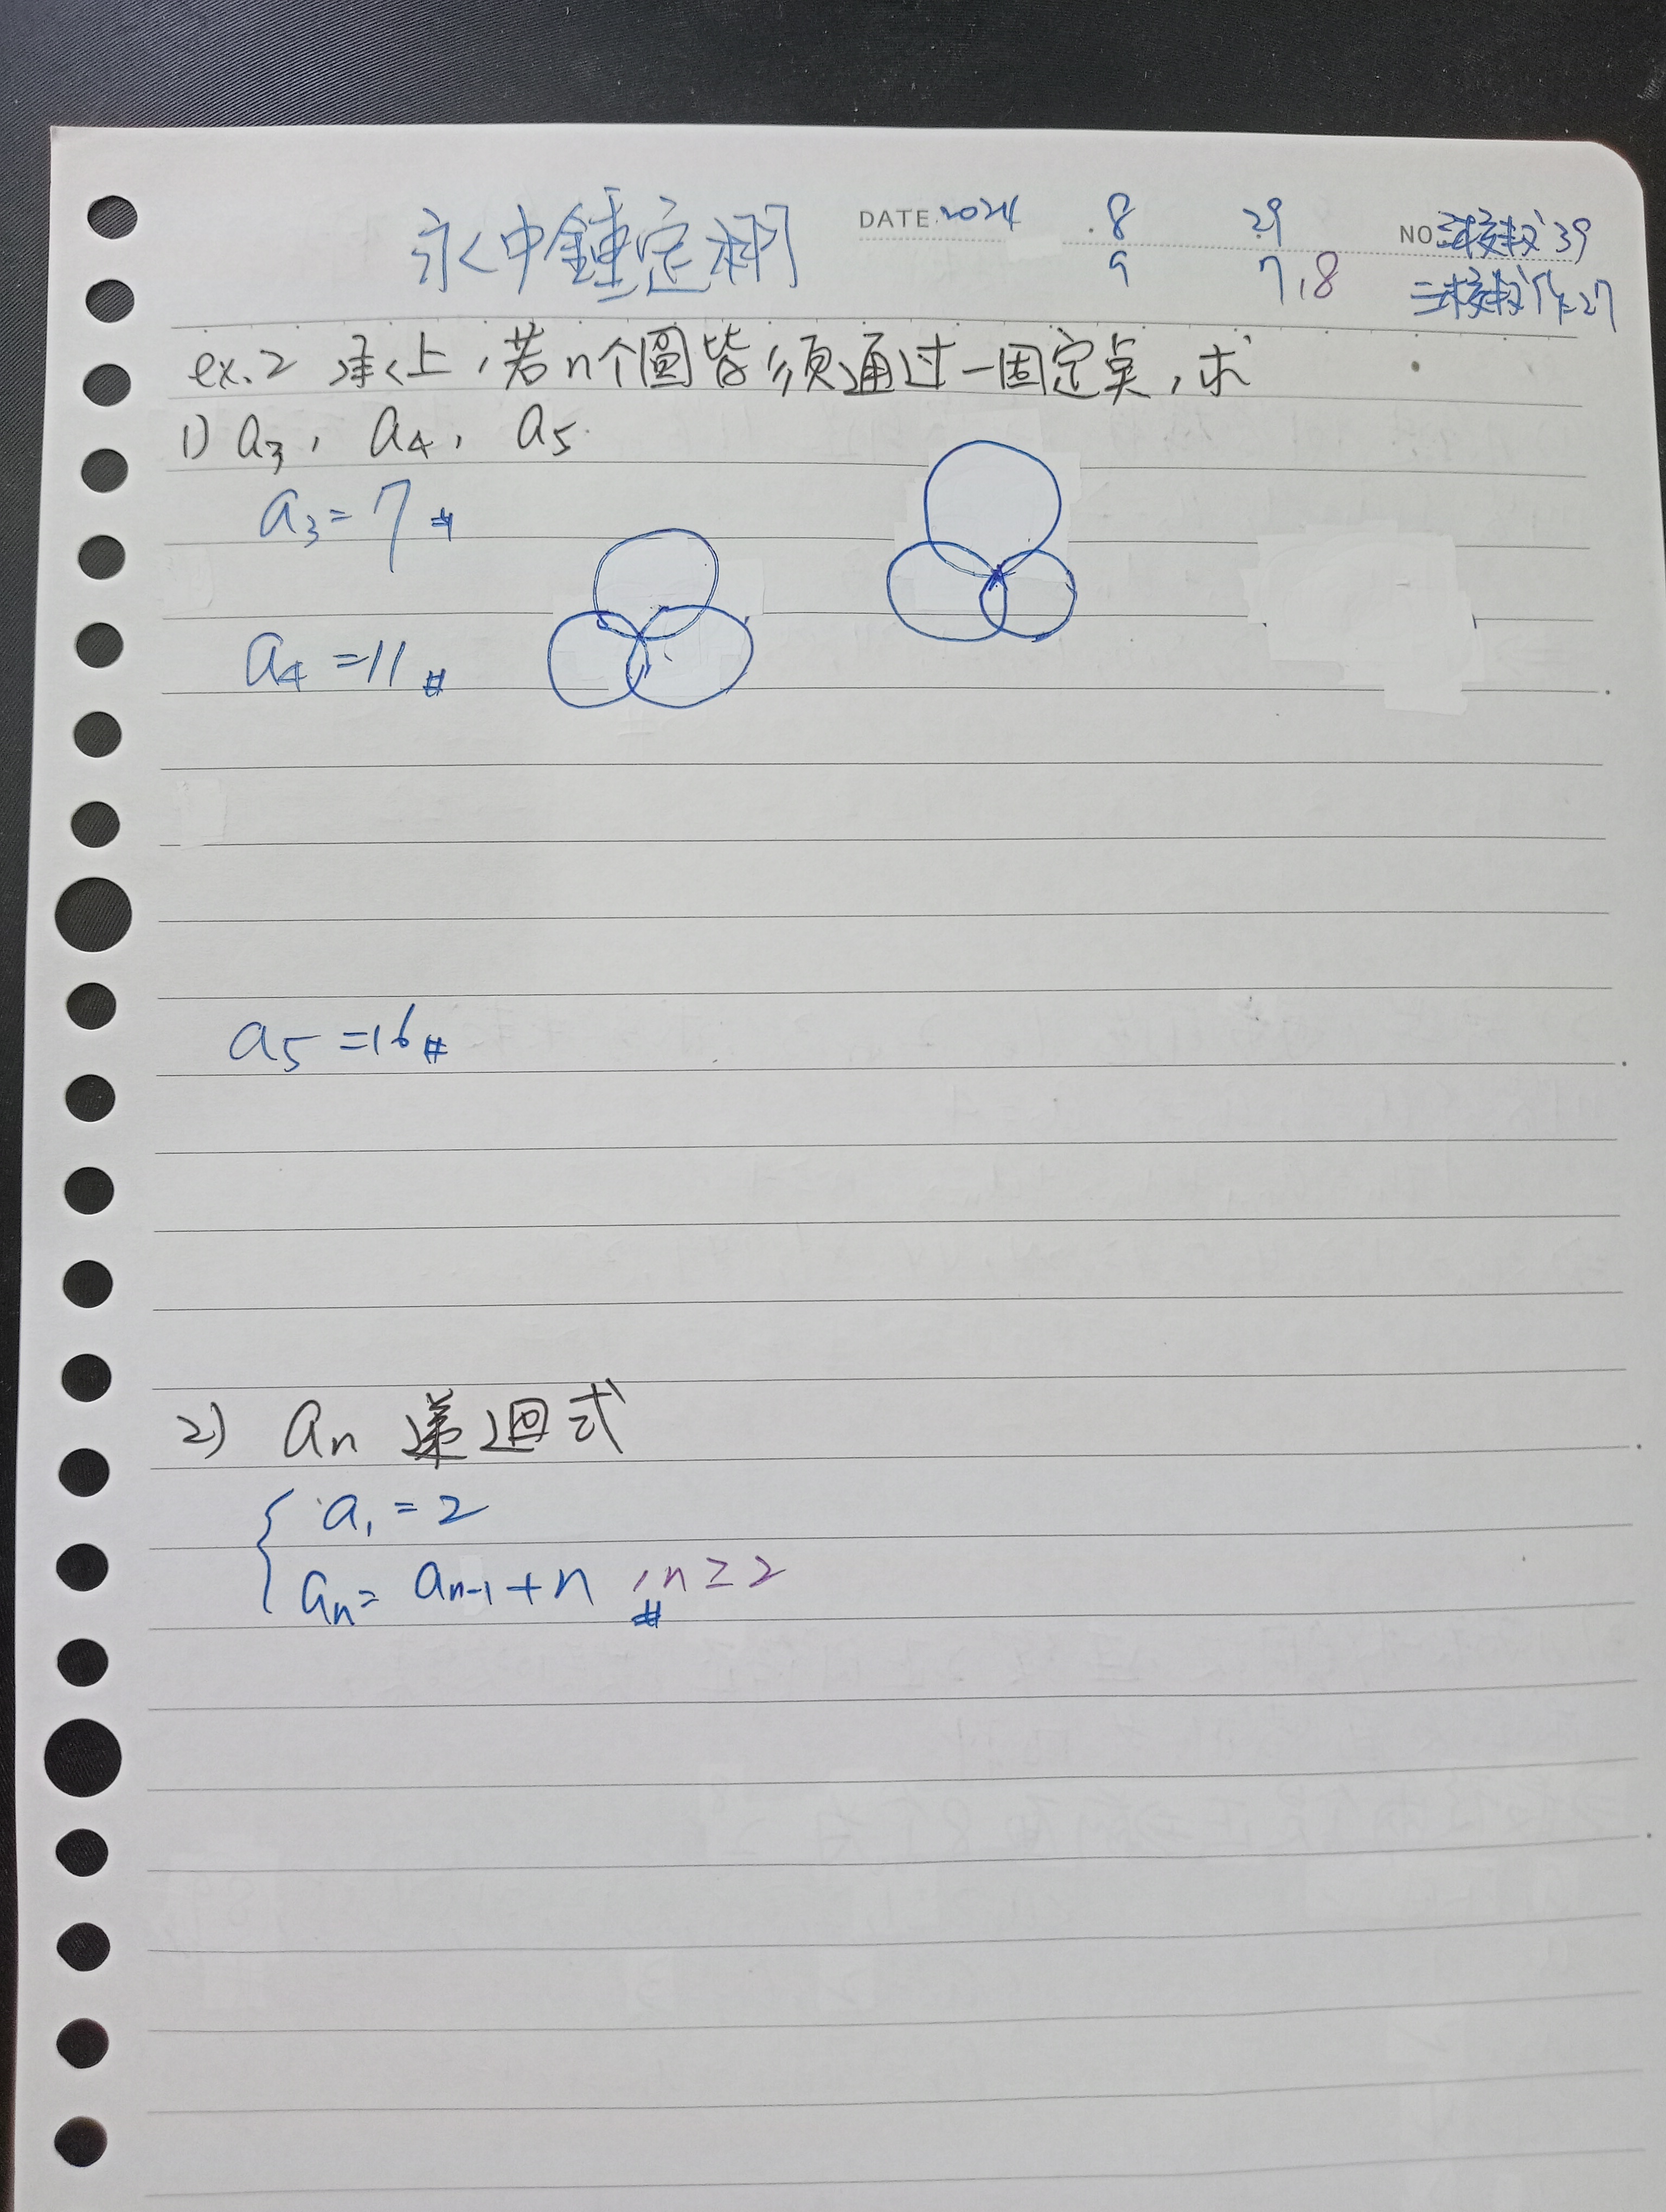 永中鍾定栩 DATE 2024 . 8 29 NO 三校救 39
9 7,8 27
ex.2 承上,若n个圓皆须通过一固定点,求
1) a₃, a₄, a₅.
a₃=7 #
a₄=11 #
a₅=16 #
2) aₙ 递迴式
{ a₁=2
aₙ= aₙ₋₁+n ,n≥2 #